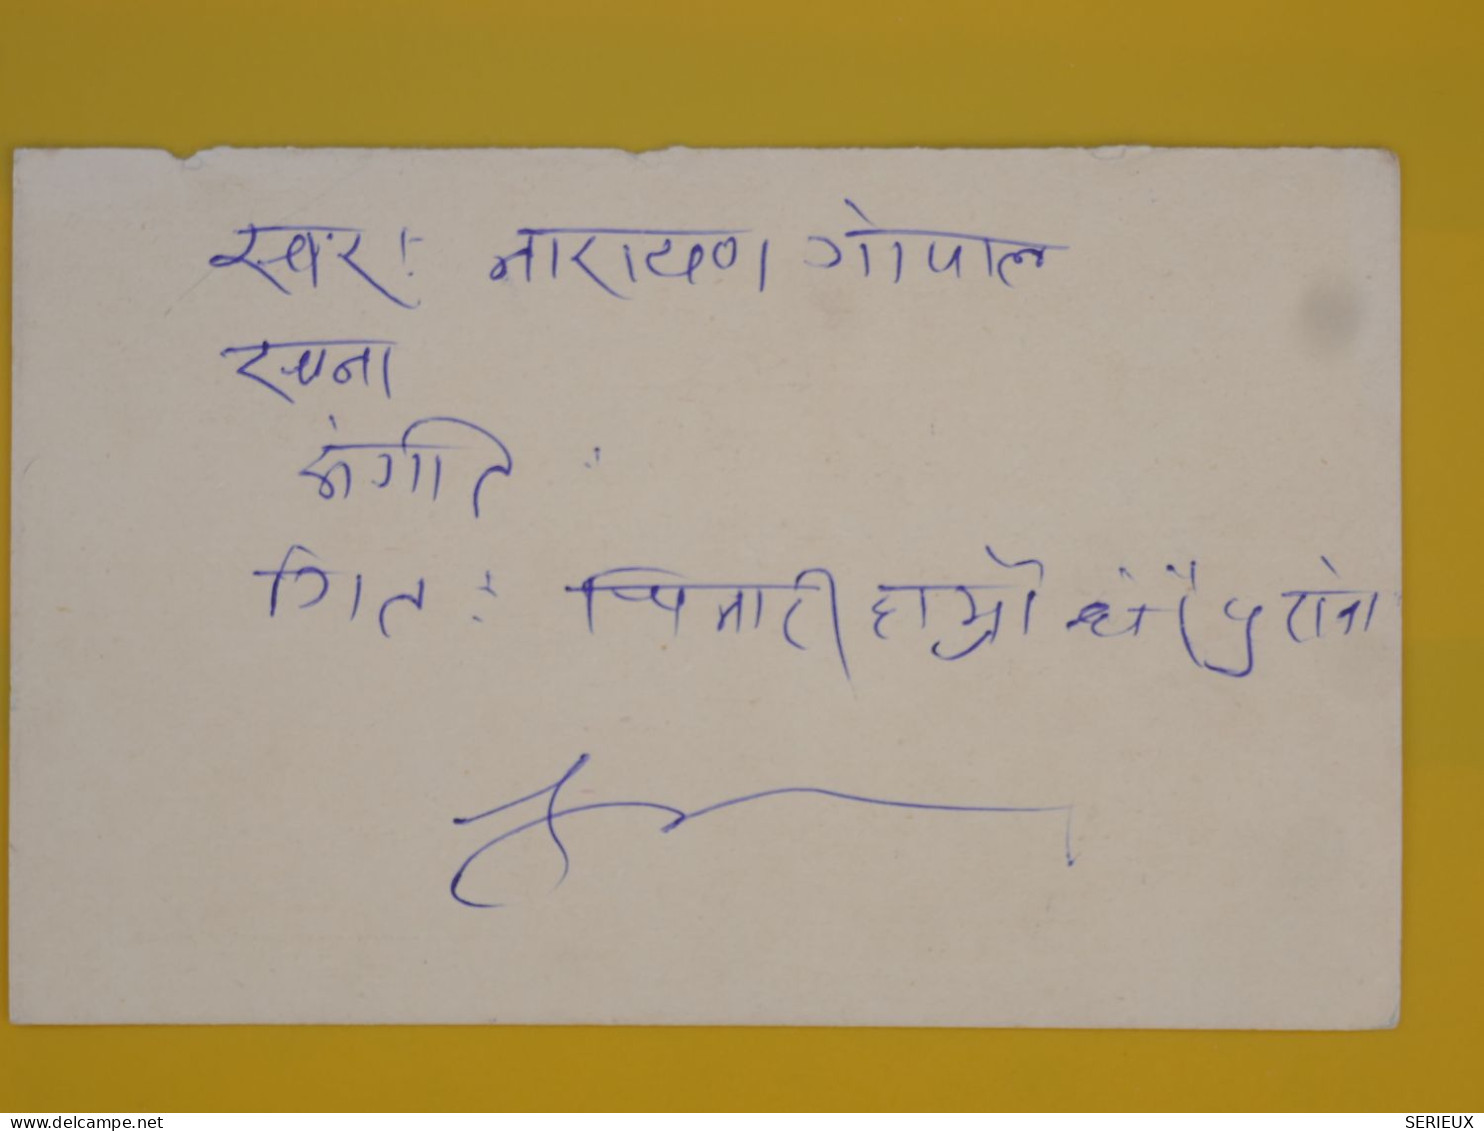 स्वर: नारायण गोपाल
रचना
संगीत :
गित: चिनारी हाम्रो धेरै पुरानो
delcampe.net
SERIEUX